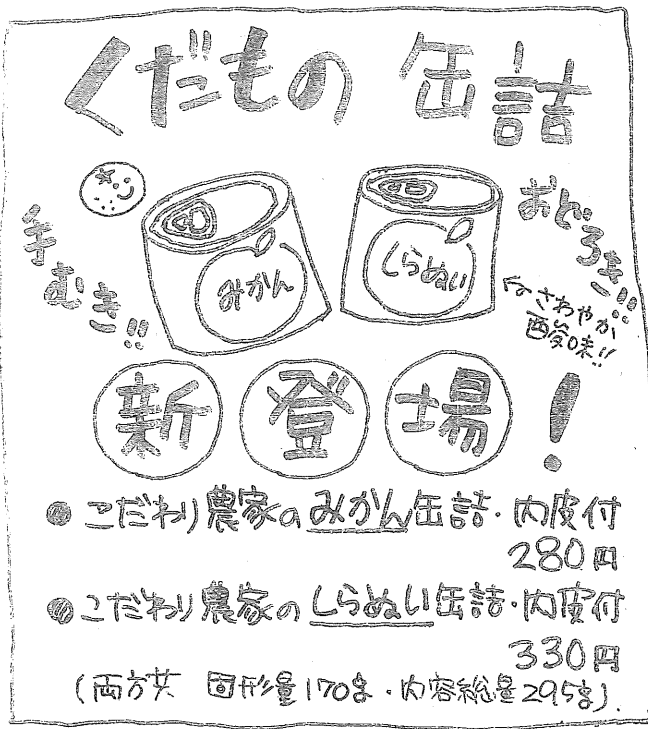 くだもの 缶詰
手むき!!
みかん
しらぬい
おどろき!!
←さわやか
酸味!!
新登場!
●こだわり農家のみかん缶詰・内皮付
280円
●こだわり農家のしらぬい缶詰・内皮付
330円
(両方共 固形量170g・内容総量295g).